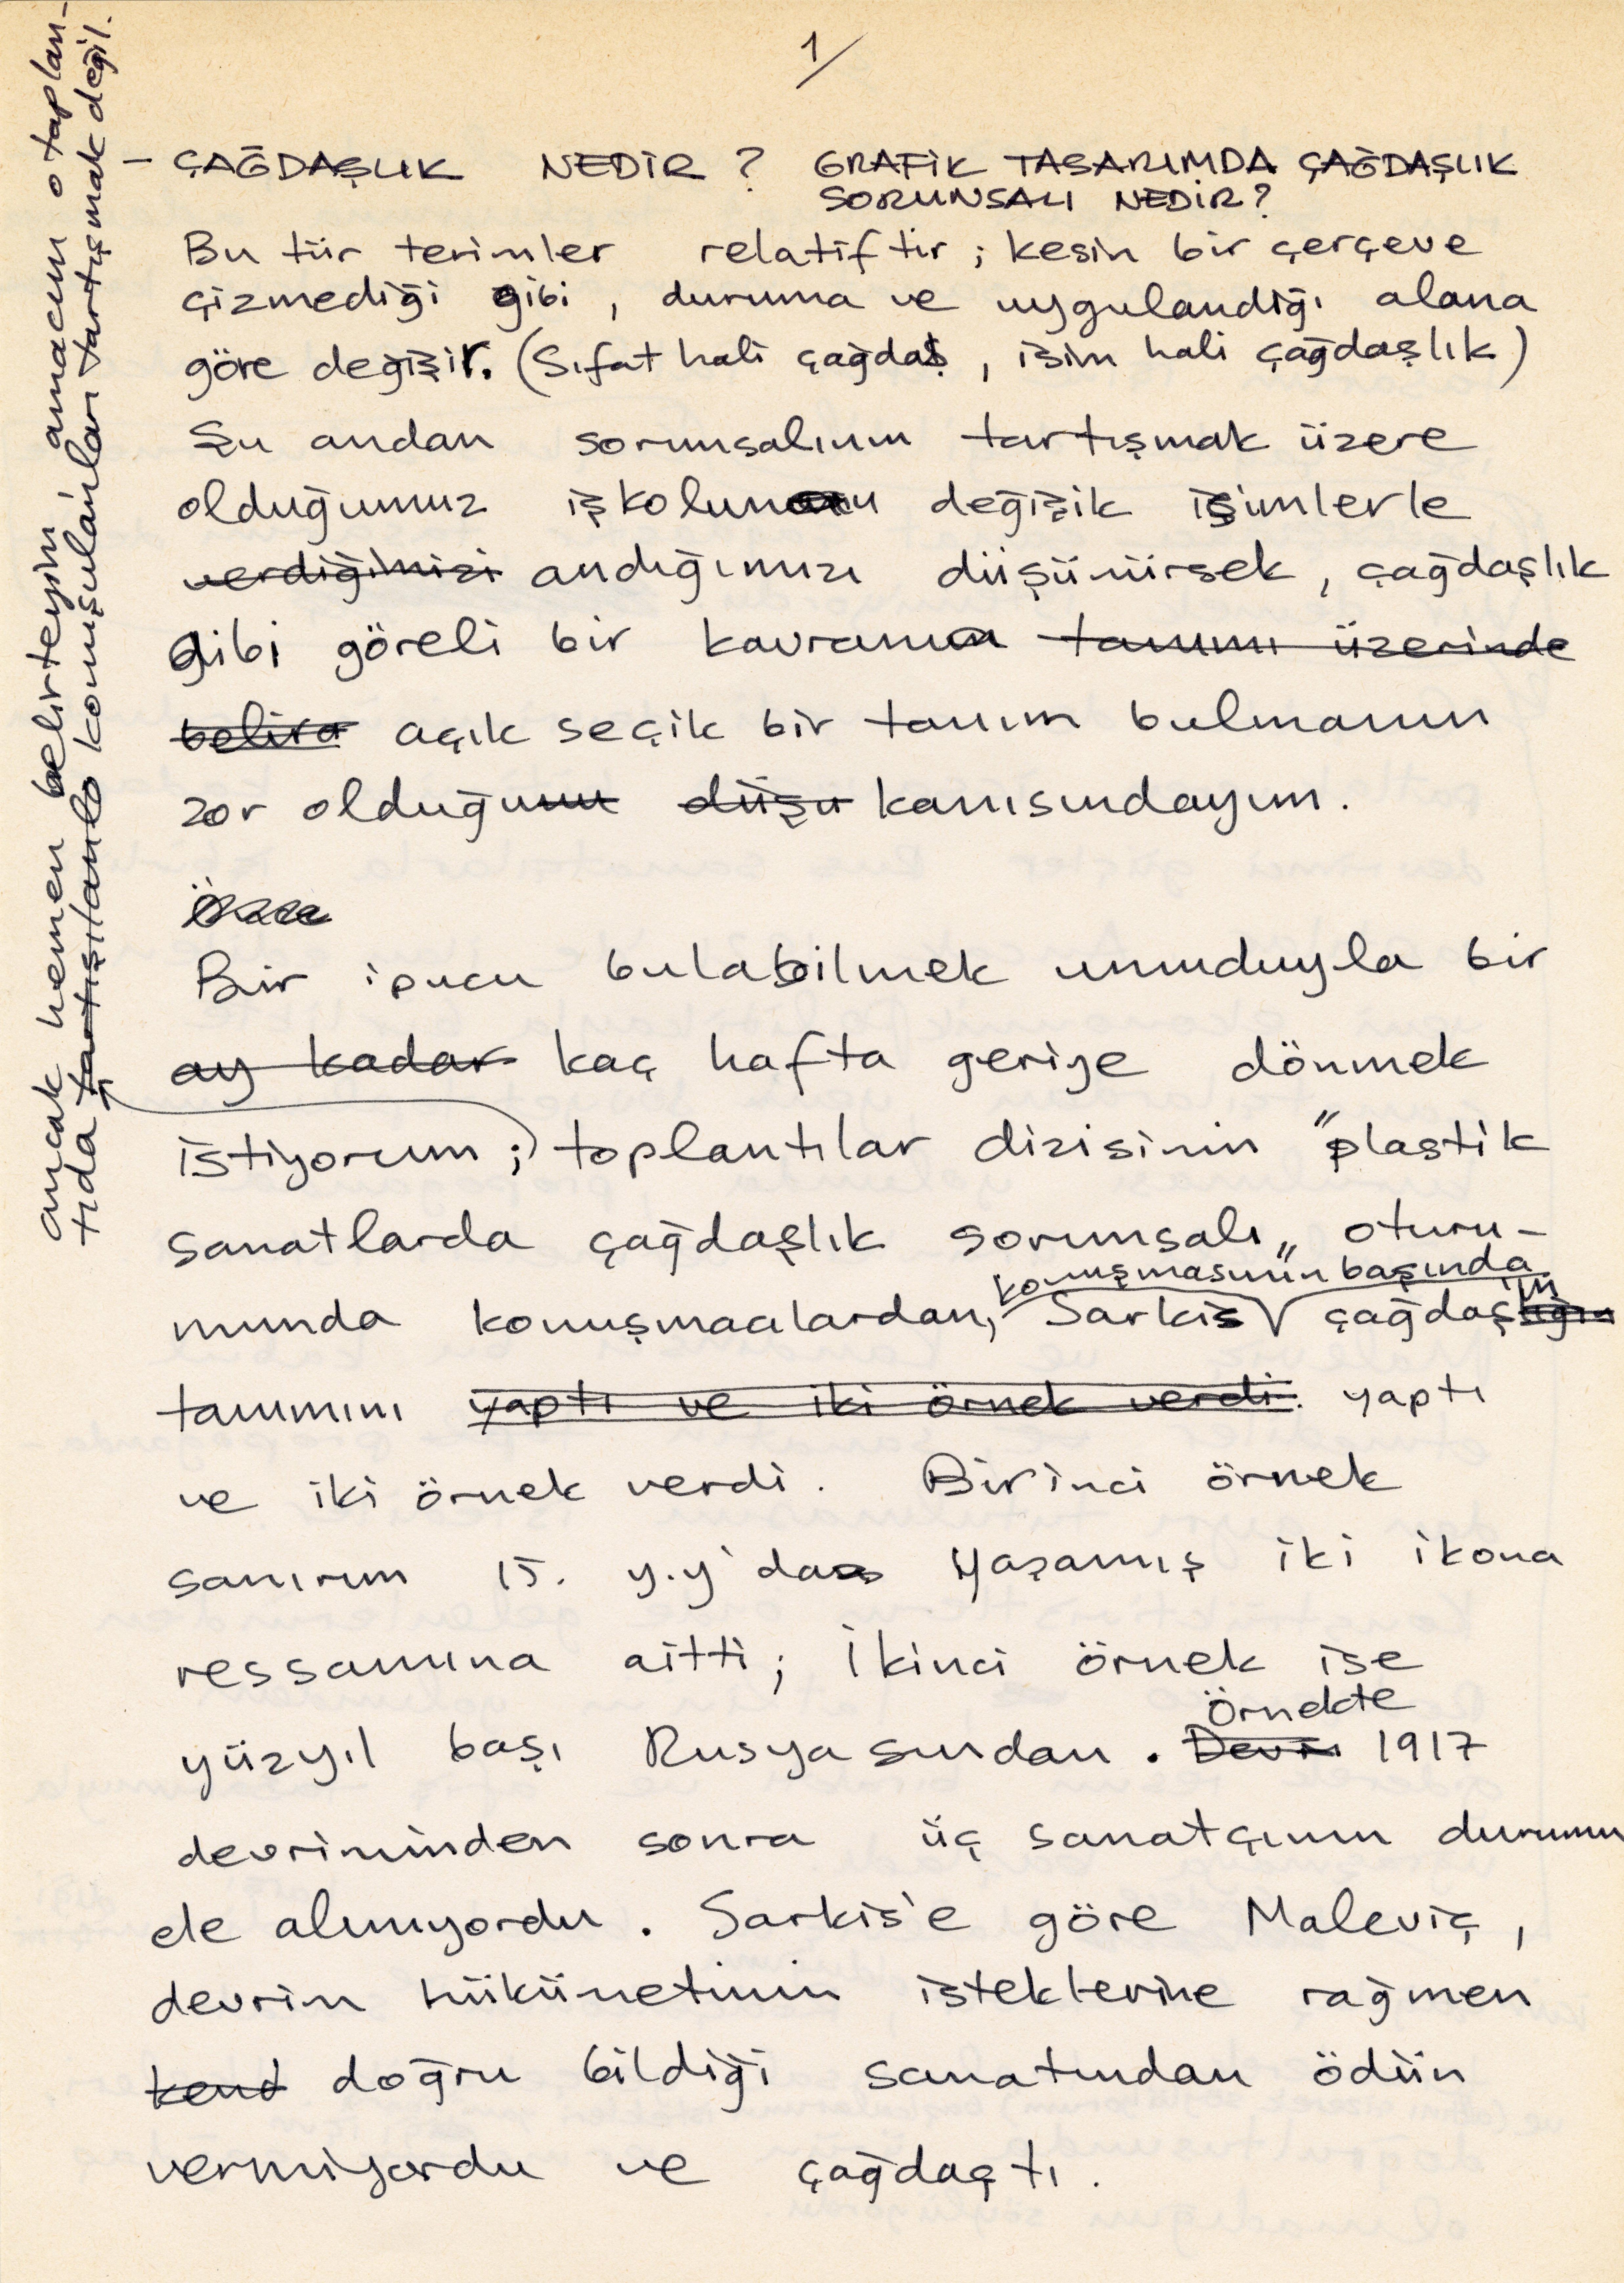 1/
– ÇAĞDAŞLIK NEDİR ? GRAFİK TASARIMDA ÇAĞDAŞLIK
SORUNSALI NEDİR?
Bu tür terimler relatiftir ; kesin bir çerçeve
çizmediği gibi , duruma ve uygulandığı alana
göre değişir. (Sıfat hali çağdaş , isim hali çağdaşlık)
Şu andan sorunsalının tartışmak üzere
olduğumuz işkolunun değişik isimlerle
verdiğimizi andığımızı düşünürsek , çağdaşlık
gibi göreli bir kavramın tanımı üzerinde
belira açık seçik bir tanım bulmanın
zor olduğunu düşü kanısındayım .
Bir ipucu bulabilmek umuduyla bir
ay kadar kaç hafta geriye dönmek
istiyorum ; toplantılar dizisinin "plastik
sanatlarda çağdaşlık sorunsalı„ oturu-
konuşmasının başında
munda konuşmacılardan, Sarkis çağdaşın
tanımını yaptı ve iki örnek verdi . yaptı
ve iki örnek verdi . Birinci örnek
sanırım 15. y.y'da yaşamış iki ikona
ressamına aitti ; İkinci örnek ise
Örnekte
yüzyıl başı Rusyasından . Devri 1917
devriminden sonra üç sanatçının durumu
ele alınıyordu . Sarkis'e göre Maleviç ,
devrim hükümetinin isteklerine rağmen
kend doğru bildiği sanatından ödün
vermiyordu ve çağdaştı .
ancak hemen belirteyim amacım o toplan-
tıda tartışılanla konuşulanları tartışmak değil.